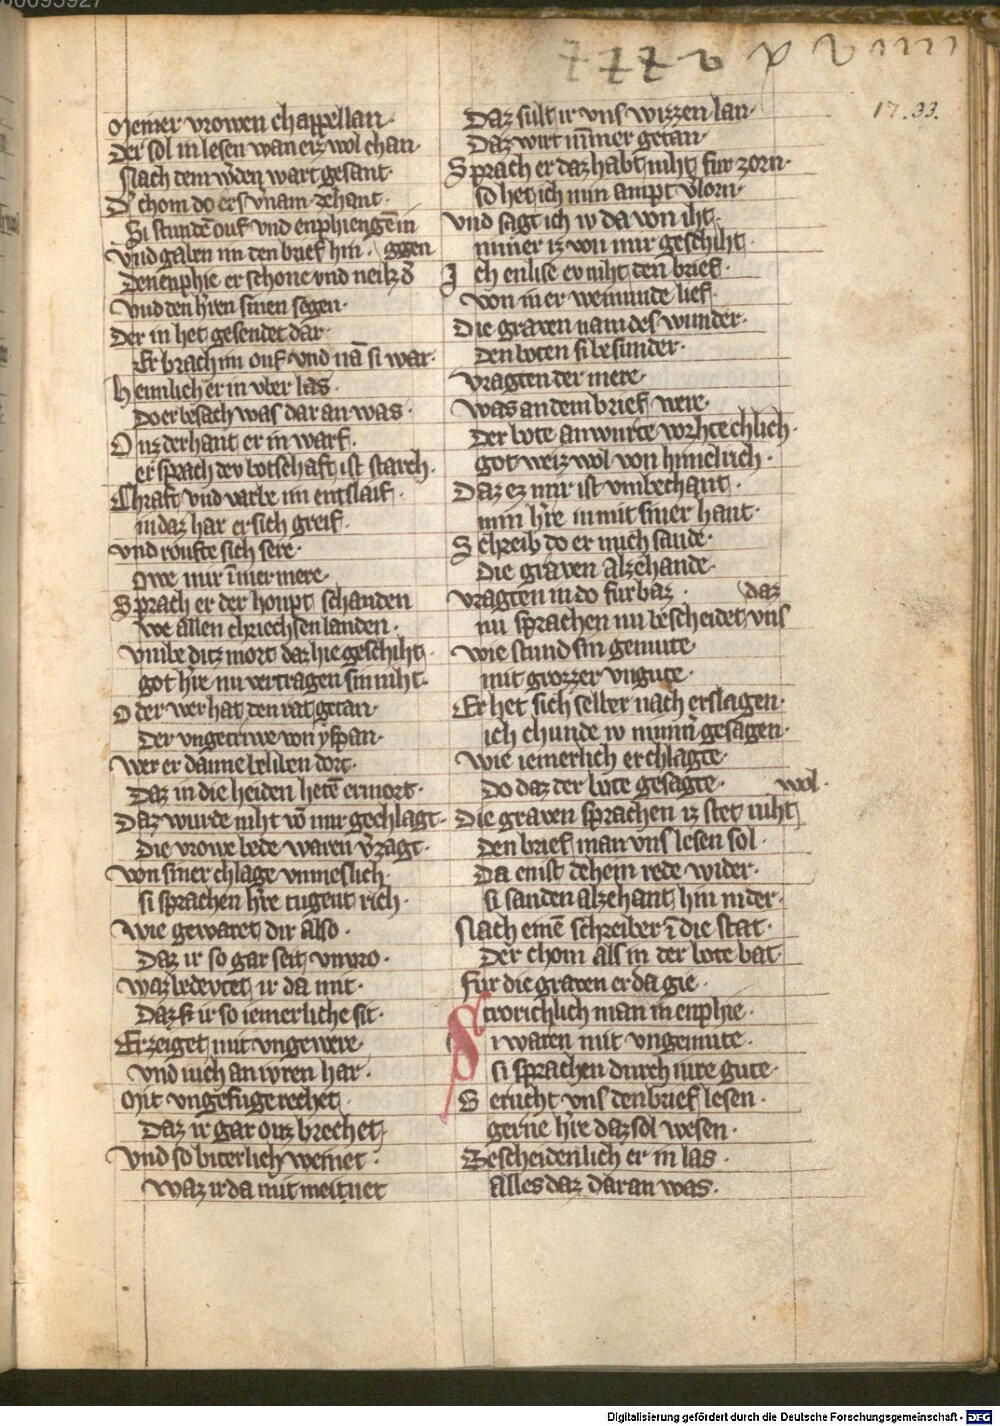 17.33.
Meiner vrowen chappellan·
Der sol in lesen wan eiz wol chan·
Nach dem wͦden wart gesant·
Dͦ chom do ers vnam zehant·
Si stundē ouf vnd enphiengē in
Vnd gaben im den brief hin·
Den enphie er schone vnd neik dͦ gegen
Vnd den hͬren sinen segen·
Der in het gesendet dar·
Er brach in ouf vnd nā si war·
Heimlich er in vber las·
Do er besach was dar an was·
Ouz der hant er in warf·
er sprach dev botschaft ist starch·
Chraft vnd varbe im entslaif·
in daz har er sich greif·
vnd roufte sich sere·
Owe mir īmer mere·
Sprach er der houpt schanden
we allen chriechsen landen·
Vmbe ditz mort daz hie geschiht·
got hͬre nu vertragen sin niht·
Oder wer hat den rat getan·
Der vngetriwe von yspan·
Wer er da inne beliben dort·
Daz in die heiden hetē ermort·
Daz wurde niht vō mir gechlagt·
Die vrowe bede waren vͦzagt·
von siner chlage vnmeslich·
si sprachen hͬre tugent rich·
Wie gewaret dir also·
Daz ir so gar seit vnvro·
waz bedevtet ir da mit·
Daz ir so iemerliche sit·
Erzeiget mit vngewere·
Vnd iuch an iwren har·
Mit vngefuge rechet·
Daz ir gar ouz brechet
Vnd so biterlich weinet·
Waz ir da mit meinet
Daz sult ir vns wizzen lan·
Daz wirt nīmer getan·
Sprach er daz habt niht fur zorn·
so het ich min ampt vͦlorn·
vnd sagt ich iv da von iht·
nimer iz von mir geschiht·
Ich enlise ev niht den brief·
von in er weinunde lief·
Die graven nam des wunder·
Den boten si besunder·
vragten der mere·
was an dem brief were·
Der bote anwurte vorhtechlich·
got weiz wol von himelrich·
Daz ez mir ist vmbechant·
min hͬre in mit siner hant·
Schreib do er mich sande·
Die graven alzehande·
vragten in do fur baz·
nu sprachen nu bescheidet vns daz
wie stund sin gemute
mit grozzer vngute·
Er het sich selber nach erslagen·
ich chunde iv nimmͦ gesagen·
wie iemerlich er chlagte·
Do daz der bote gesagte·
Die graven sprachen iz stet niht wol·
Den brief man vns lesen sol·
Da enist dehein rede wider·
si sanden alzehant hin nider·
Nach einē schreiber ī die stat·
Der chom als in der bote bat·
Fur die graven er da gie·
Strorichlich man in enphie·
Si waren mit vngemute·
si sprachen durch iwre gute·
Gerucht vns den brief lesen·
gerne hͬre daz sol wesen·
Bescheidenlich er in las·
alles daz dar an was·
Digitalisierung gefördert durch die Deutsche Forschungsgemeinschaft - DFG